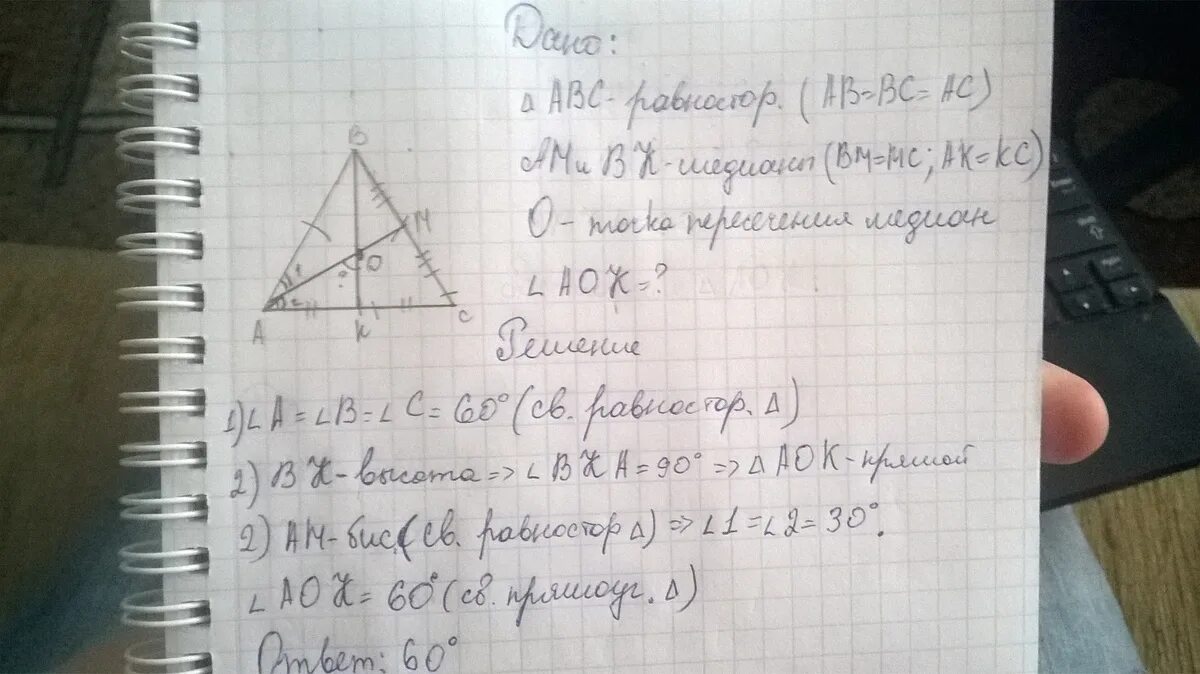 Дано:
△ ABC - равностор. (AB=BC=AC)
AM и BK - медианы (BM=MC; AK=KC)
O - точка пересечения медиан
∠AOK=?
B
M
1
O
?
2
A
K
C
Решение
1) ∠A=∠B=∠C=60° (св. равностор. △)
2) BK - высота => ∠BKA=90° => △AOK - прямой
2) AM - бис. (св. равностор △) => ∠1=∠2=30°.
∠AOK=60° (св. прямоуг. △)
Ответ: 60°